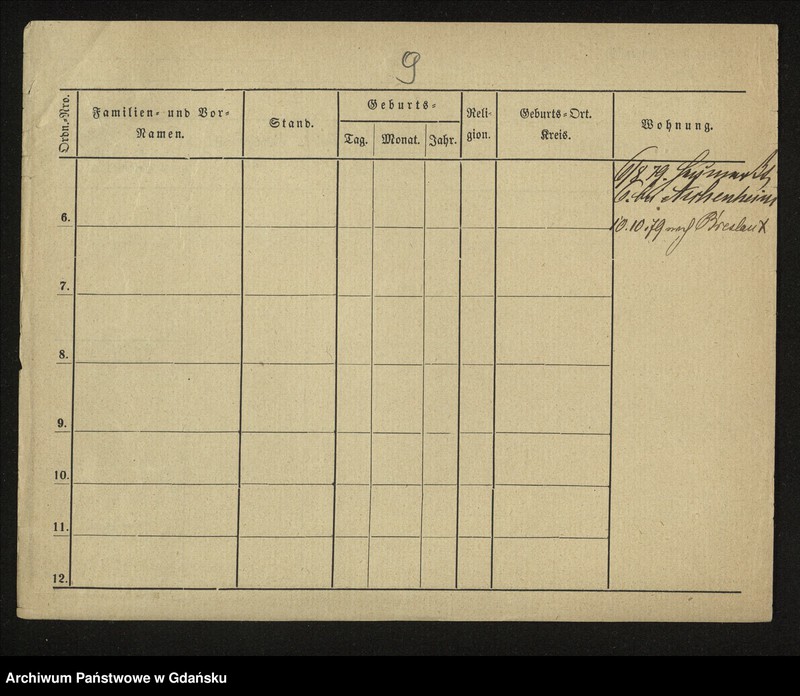 9
Ordn.-Nro.
Familien- und Vor-
Namen.
Stand.
Geburts-
Tag. Monat. Jahr.
Reli-
gion.
Geburts-Ort.
Kreis.
Wohnung.
6/8 79. Heumarkt
6. bei Aschenheim
10.10.79 nach Breslau
6.
7.
8.
9.
10.
11.
12.
Archiwum Państwowe w Gdańsku